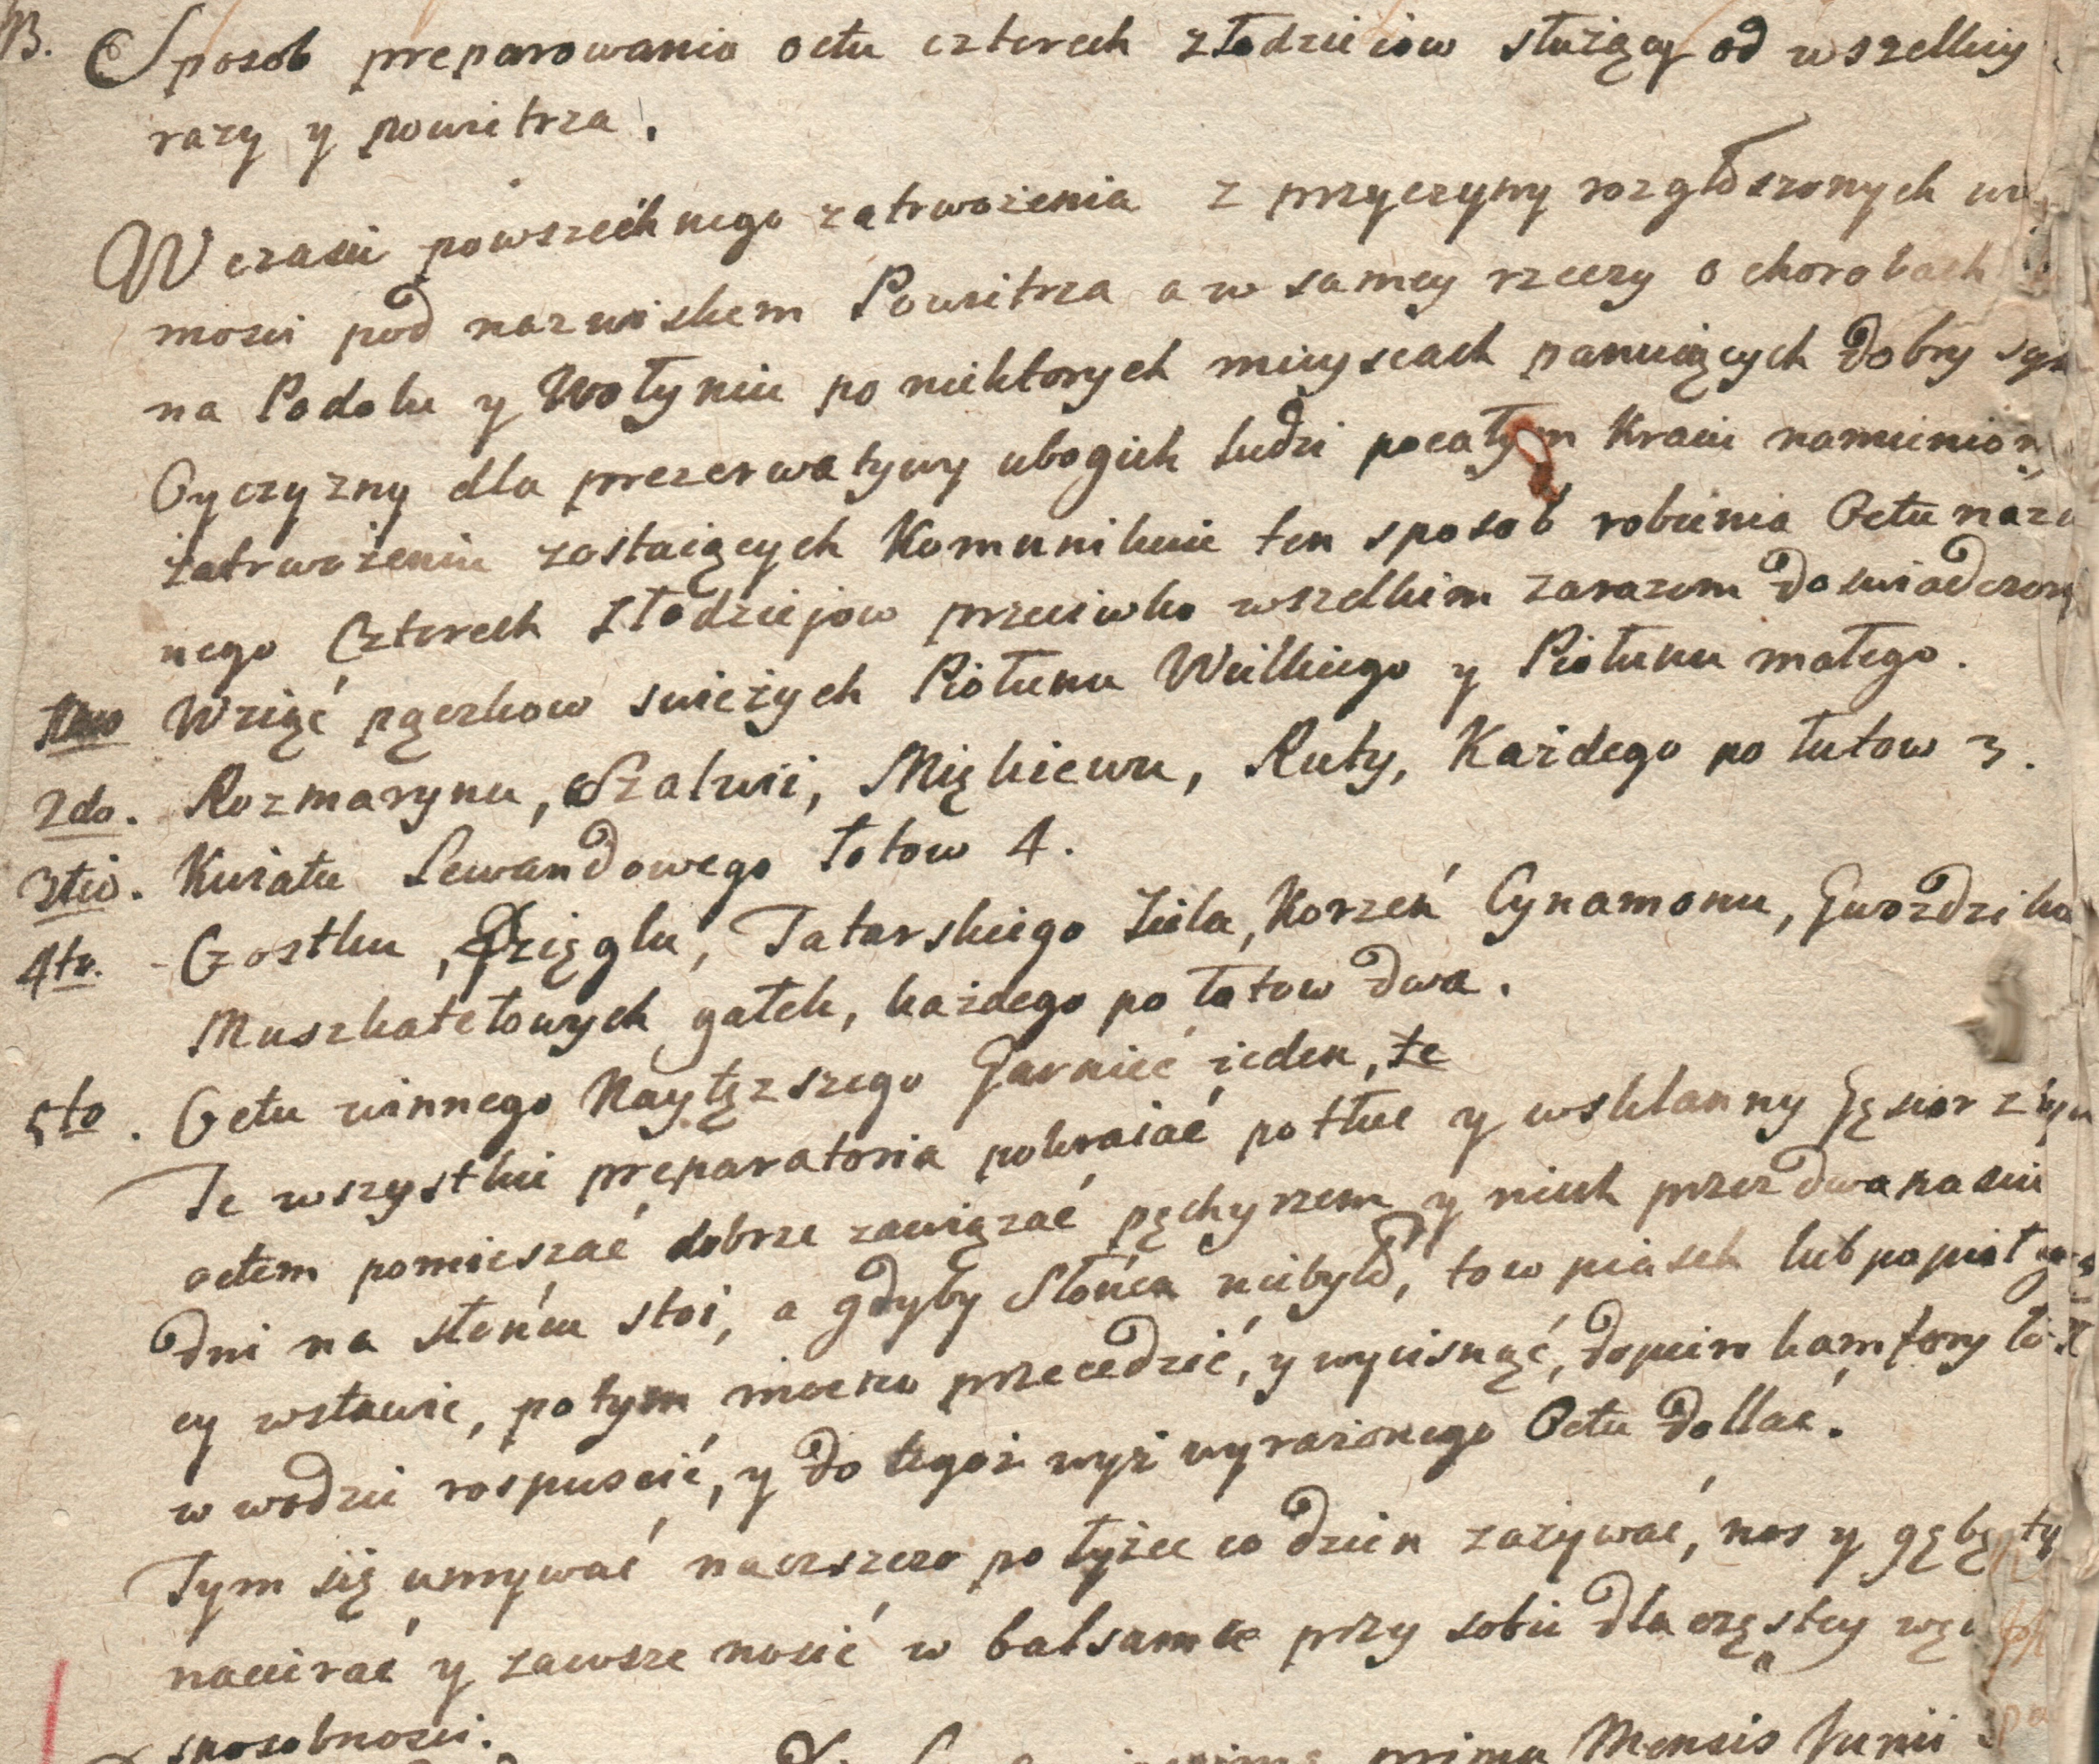 B. Sposob preparowania octu czterech złodzieiow służący od wszelkiy
razy y powietrza.
W czasie powszechnego zatrwożenia z przyczyny rozgłoszonych
mosci pod nazwiskem Powietrza a w samey rzeczy o chorobach
na Podolu y Wołyniu po niektorych mieyscach panuiących dobry syn
Oyczyzny dla prezerwatywy ubogich ludzi po całym Kraiu namienion
zatrwożeniu zostaiących Komunikuie ten sposob robienia Octu nazw
nego Czterech Złodziejow przeciwko wszelkim zarazom doswiadczon
1mo Wziąć pączkow swieżych Piołunu Wielkiego y Piołunu małego.
2do. Rozmarynu, Szalwii, Miętkiewu, Ruty, Każdego po łutow 3.
3tio. Kwiatu Lewandowego łotow 4.
4to. Czostku, Dzięglu, Tatarskiego Ziela, Korzeń Cynamonu, Gwoździko
Muszkatełowych gałek, każdego po łotow dwa.
5to. Octu winnego Naytęzszego Garniec ieden, te
Te wszystkie preparatoria pokraiać potłuc y w sklanny Gąsior z tym
octem pomieszać dobrze zawiązać pęchyrzem y niech przez dwanascie
dni na słońcu stoi, a gdyby Słońca niebyło, to w piasek lub popioł
cy wstawić, potym mocno przecedzić, y wycisnąć, dopiero kamfory łó
w wodzie rospuscić, y do tegoż wyż wyrażonego Octu dollać.
Tym się umywać naczszczo po łyżce co dzien zażywać, nos y gębę ty
nacierać y zawsze nosić w balsamce przy sobie dla częstey
sposobnosci.
prima Mensis Junii